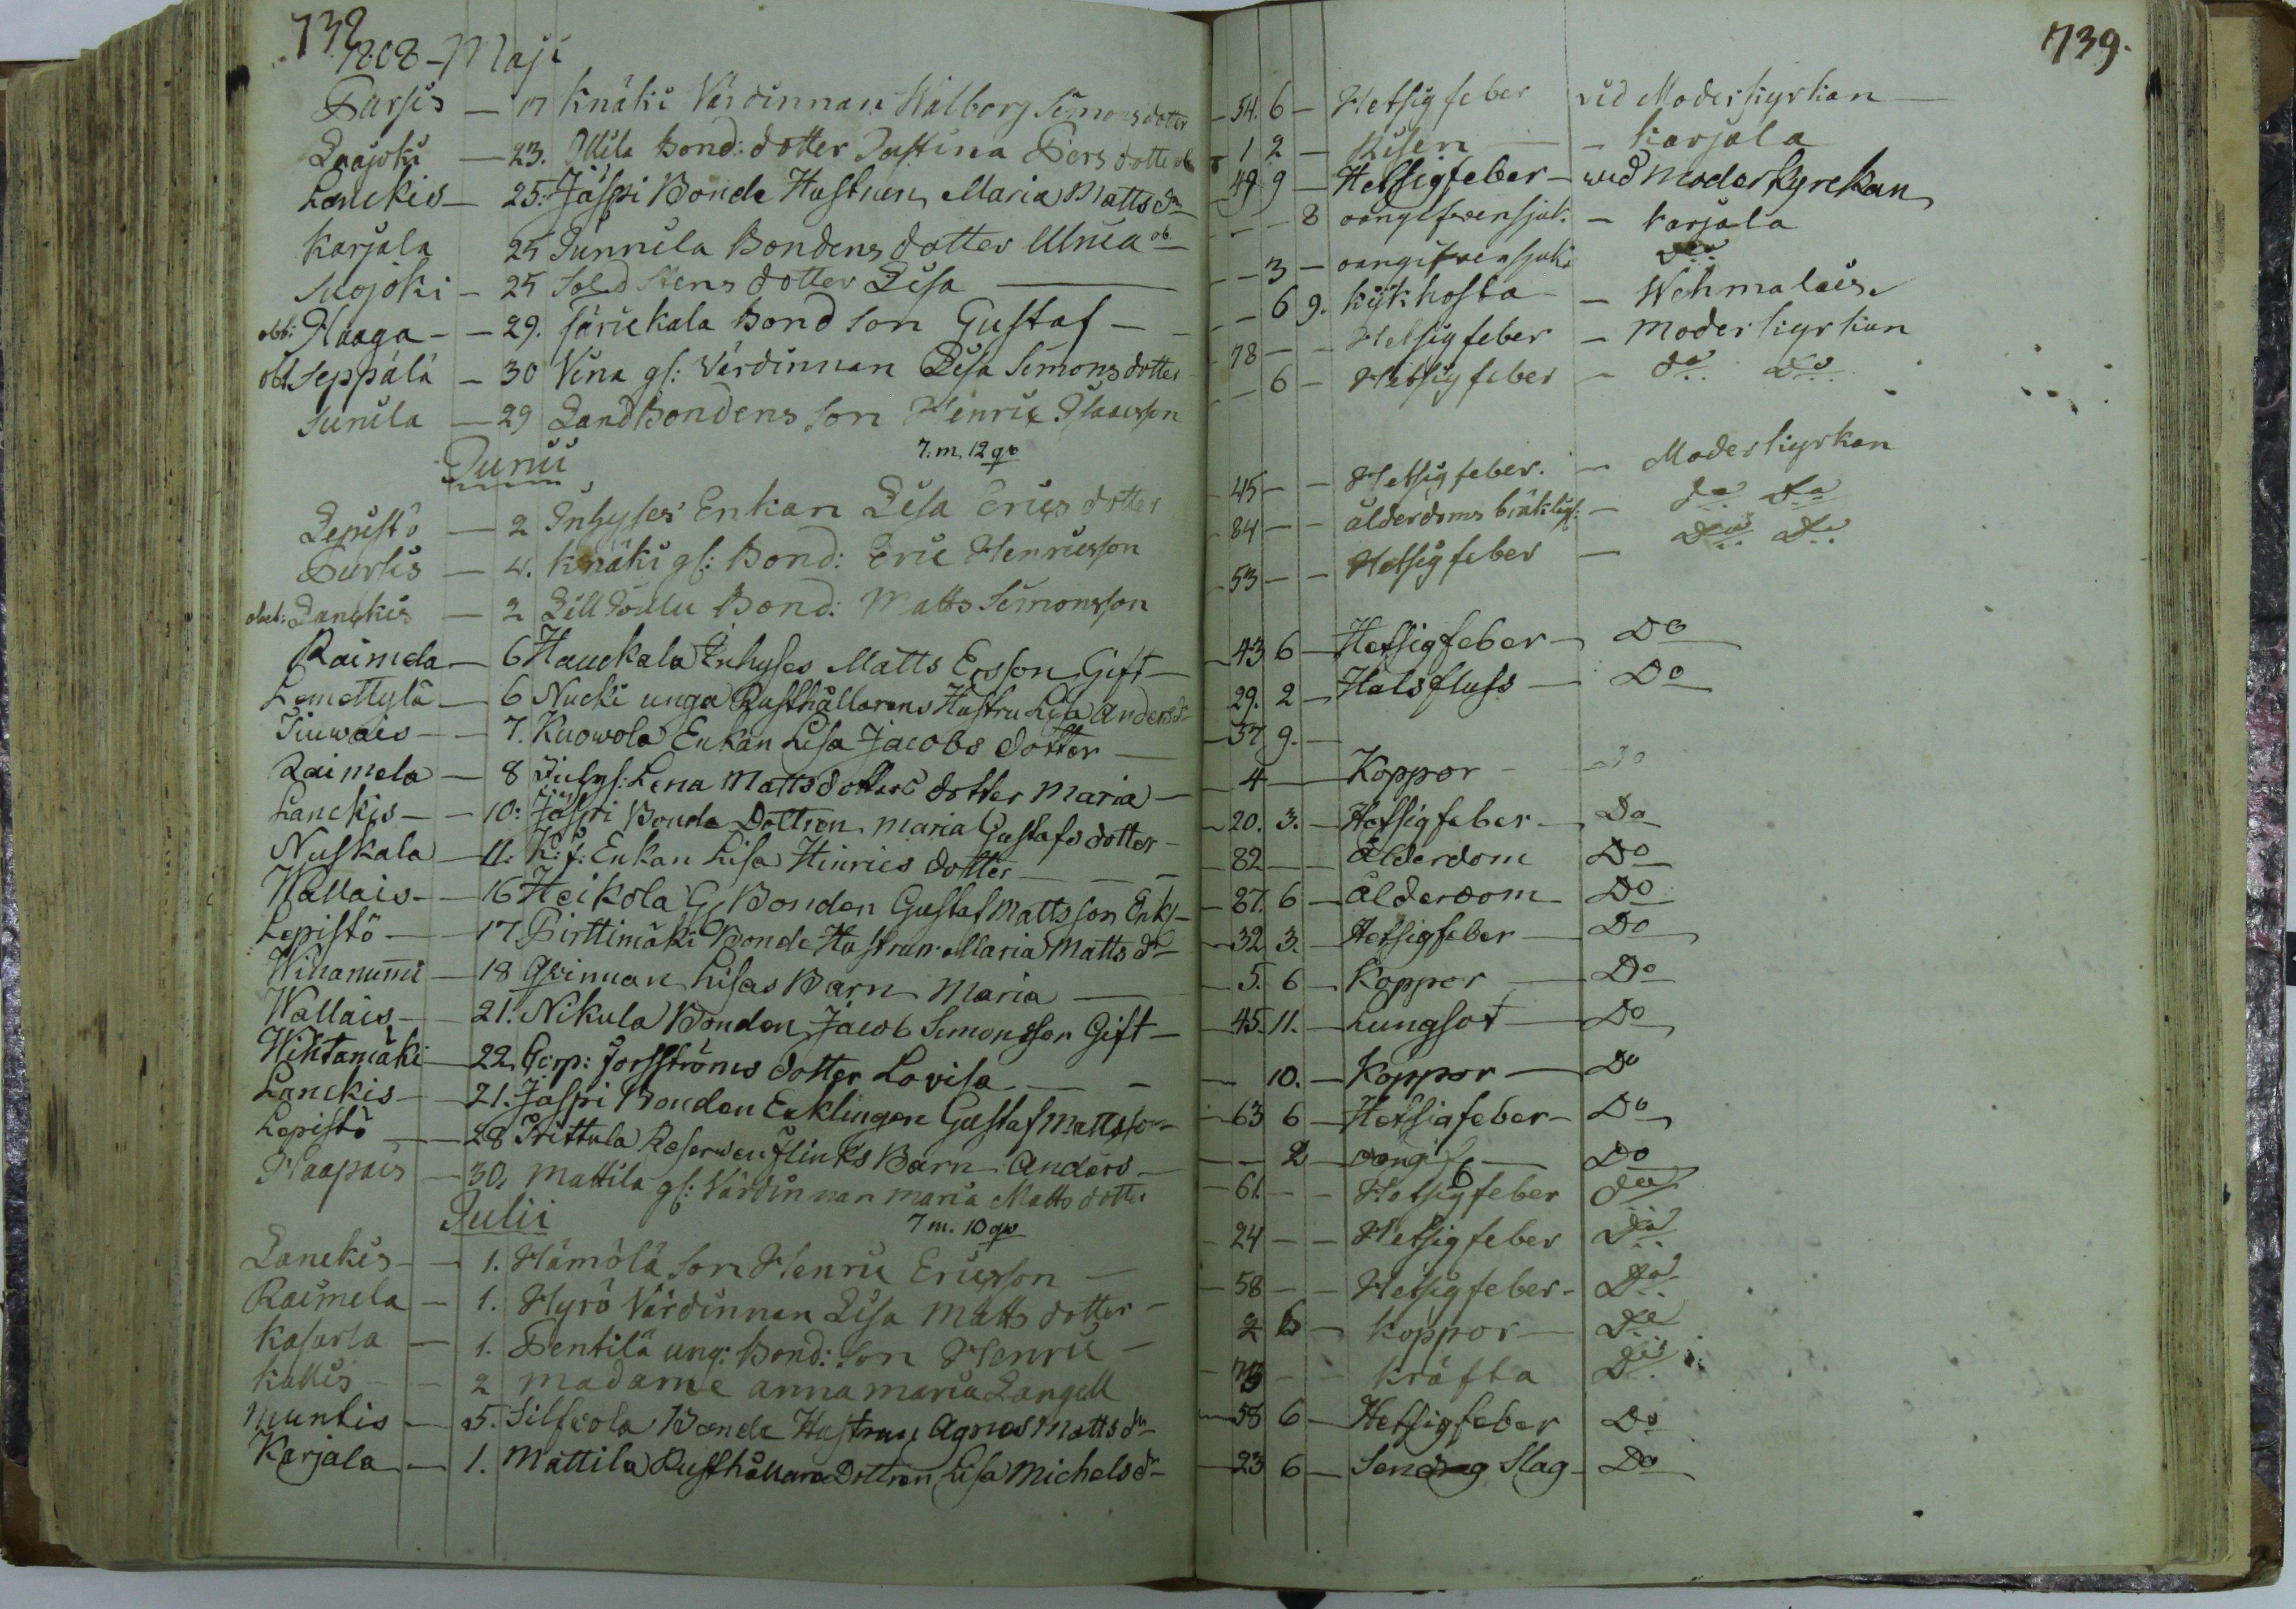 738
739.
1808 - Maji
Pursis - 17 Knäki Värdinnan Walborg Simonsdotter - 54. 6 - Hetsigfeber vid Moderkyrkan -
Laajoki - 23. Illila Bond: dotter Justina Pers dotter 1 2 - Risen - Karjala
Lanckis - 25. Jäspi Bonde Hustrun Maria Matts dr - 49 9 - Hetsigfeber - wid Moderkyrckan
Karjala 25 Junnila Bondens dotter Ulrica ob - - - 8 oangifvensjuk. - Karjala
Mojoki - 25 Sold Stens dotter Lisa - - 3 - oangifvensjuk. Do
obt: Haaga - - 29. Järickala Bond Son Gustaf - - 6 9. kikhosta - Wehmalais.
obt Seppälä - 30 Vina gl: Värdinnan Lisa Simonsdotter 78 - - Hetsigfeber - Moderkyrkan
Junila - 29 Landbondens Son Henric Isacsson - 6 - Hetsigfeber - do Do
Junii 7. m. 12 qv
Lepistö - 2 Inhyses Enkan Lisa Erics dotter 45 - - Hetsigfeber. - Moderkyrkan
Pursis - 4. Knäki gl: Bond: Eric Henricsson 84 - - ålderdoms bräkligh: - do Do
Lanckis - 2 Lill Joulu Bond: Matts Simonsson 53 - - Hetsigfeber - Do Do
Raimela - 6 Hauckala Inhyses Matts Ersson Gift - 43 6 - Hetsigfeber - Do
Lemettylä - 6 Nucki unga Rusthållarens Hustru Lisa Anders dr 29. 2 - Halsfluss - Do
- 7. Kuowola Enkan Lisa Jacobs dotter - 57 9. -
Raimela - 8 Inhys: Lena Mattsdotters dotter Maria - 4 - Koppor - Do
Lanckis - - 10: Jäspi Bonde Dottren Maria Gustafs dotter - 20. 3. - Hetsigfeber - Do
Nuskala - 11. K: f: Enkan Lisa Hinrics dotter - - - 82 - Ålderdom Do
Wallais - - 16 Heikola Gl Bonden Gustaf Mattsson Enkl - 87. 6 - Ålderdom - Do
Lepistö - 17 Pirttimäki Bonde Hustrun Maria Matts dr - 32 3. - Hetsigfeber - Do
Wihanummi - 18 Qvinnan Lisas Barn Maria - 5. 6 - Koppor - Do
Wallais - 21. Nikula Bonden Jacob Simonsson Gift - 45. 11. - Lungsot - Do
Wihtamäki - 22. Corp: Forsströms dotter Lovisa - - 10. - Koppor - Do
Lanckis - 21. Jäspi Bonden Enklingen Gustaf Mattsson - 63 6 - Hetsigfeber - Do
Lepistö - 28 Prittula Reserven Flinks Barn Anders - - 2 - oangif - Do
Haapais - 30. Mattila gl: Värdinnan Maria Matts dotter 61. - - Hetsigfeber do
Julii 7 m. 10 qv
Lanckis - - 1. Hämölä Son Henric Ericsson - 24 - - Hetsigfeber Do
Raimela - 1. Hyrö Värdinnan Lisa Matts dotter - 58 - - Hetsigfeber - Do
Kasarla - 1. Pentilä ung: Bond: Son Henric - 2 6 - Koppor - Do
Kallis - - 2 Madame Anna Maria Langell 73 - - Kräfta Do
Muntis - 5. Silfvola Bonde Hustrun Agnes Matts dr - 55 6 - Hetsigfeber Do
Karjala - 1. Mattila Rusthållare Dottren Lisa Michels dr - 23 6 - Sendrag Slag - Do